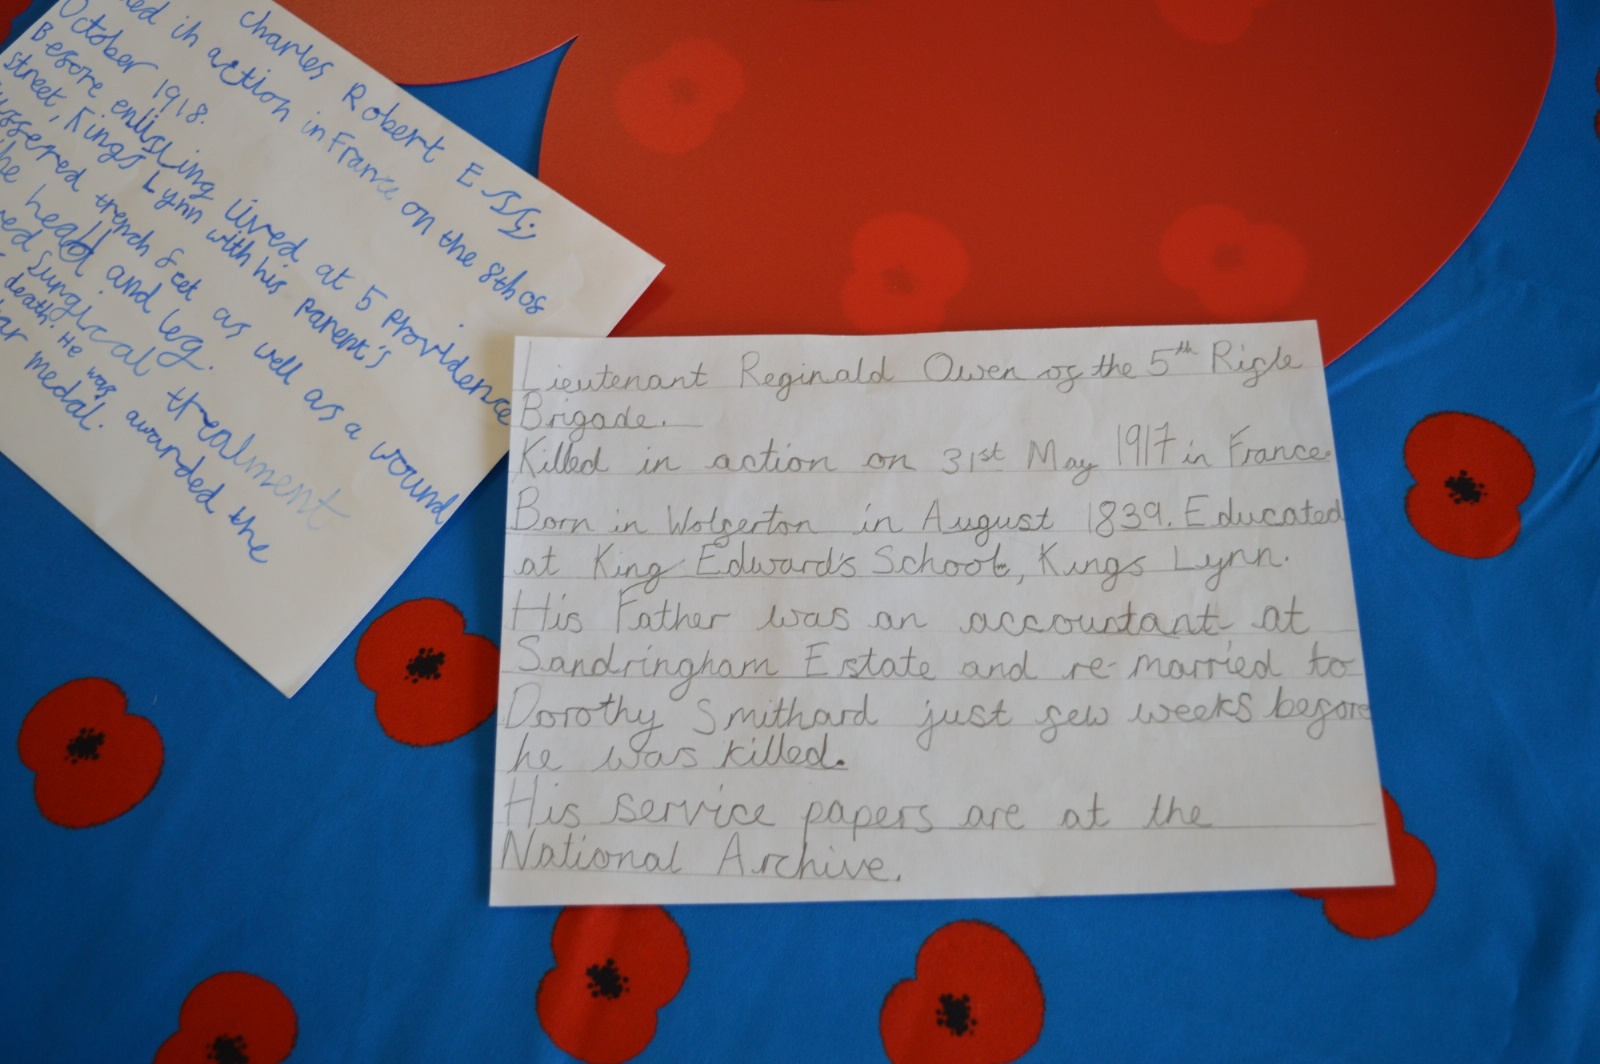 Charles Robert
ed in action in France on the 8th of
October 1918.
Before enlisting lived at 5 Providence
street, Kings Lynn with his parent's
uffered trench feet as well as a wound
he head and leg.
ed Surgical treatment
death. He was awarded the
ar medal.
Lieutenant Reginald Owen of the 5th Rifle
Brigade.
Killed in action on 31st May 1917 in France.
Born in Wolferton in August 1839. Educated
at King Edward's School, Kings Lynn.
His Father was an accountant at
Sandringham Estate and re-married to
Dorothy Smithard just few weeks before
he was killed.
His service papers are at the
National Archive.